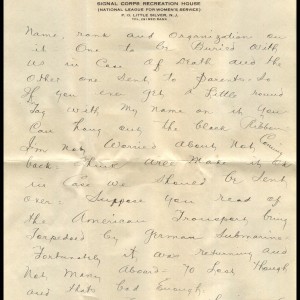 SIGNAL CORPS RECREATION HOUSE
(NATIONAL LEAGUE FOR WOMEN'S SERVICE)
P. O. LITTLE SILVER, N.J.
Name, rank and Organization on
it One to be Buried With
us in Case of Death and the
Other one Sent to Parents. So
If you ever get a Little round
Tag with My Name on it You
Can hang out the black Ribbon
I'm Not Worried About Not Coming
back. think Ares Make it
in Case We Should be Sent
Over. Suppose you read of
the American Transport being
Torpedoed by German Submarine
Fortunately it was returning and
Not Many Aboard- 70 Lost though
and thats bad Enough